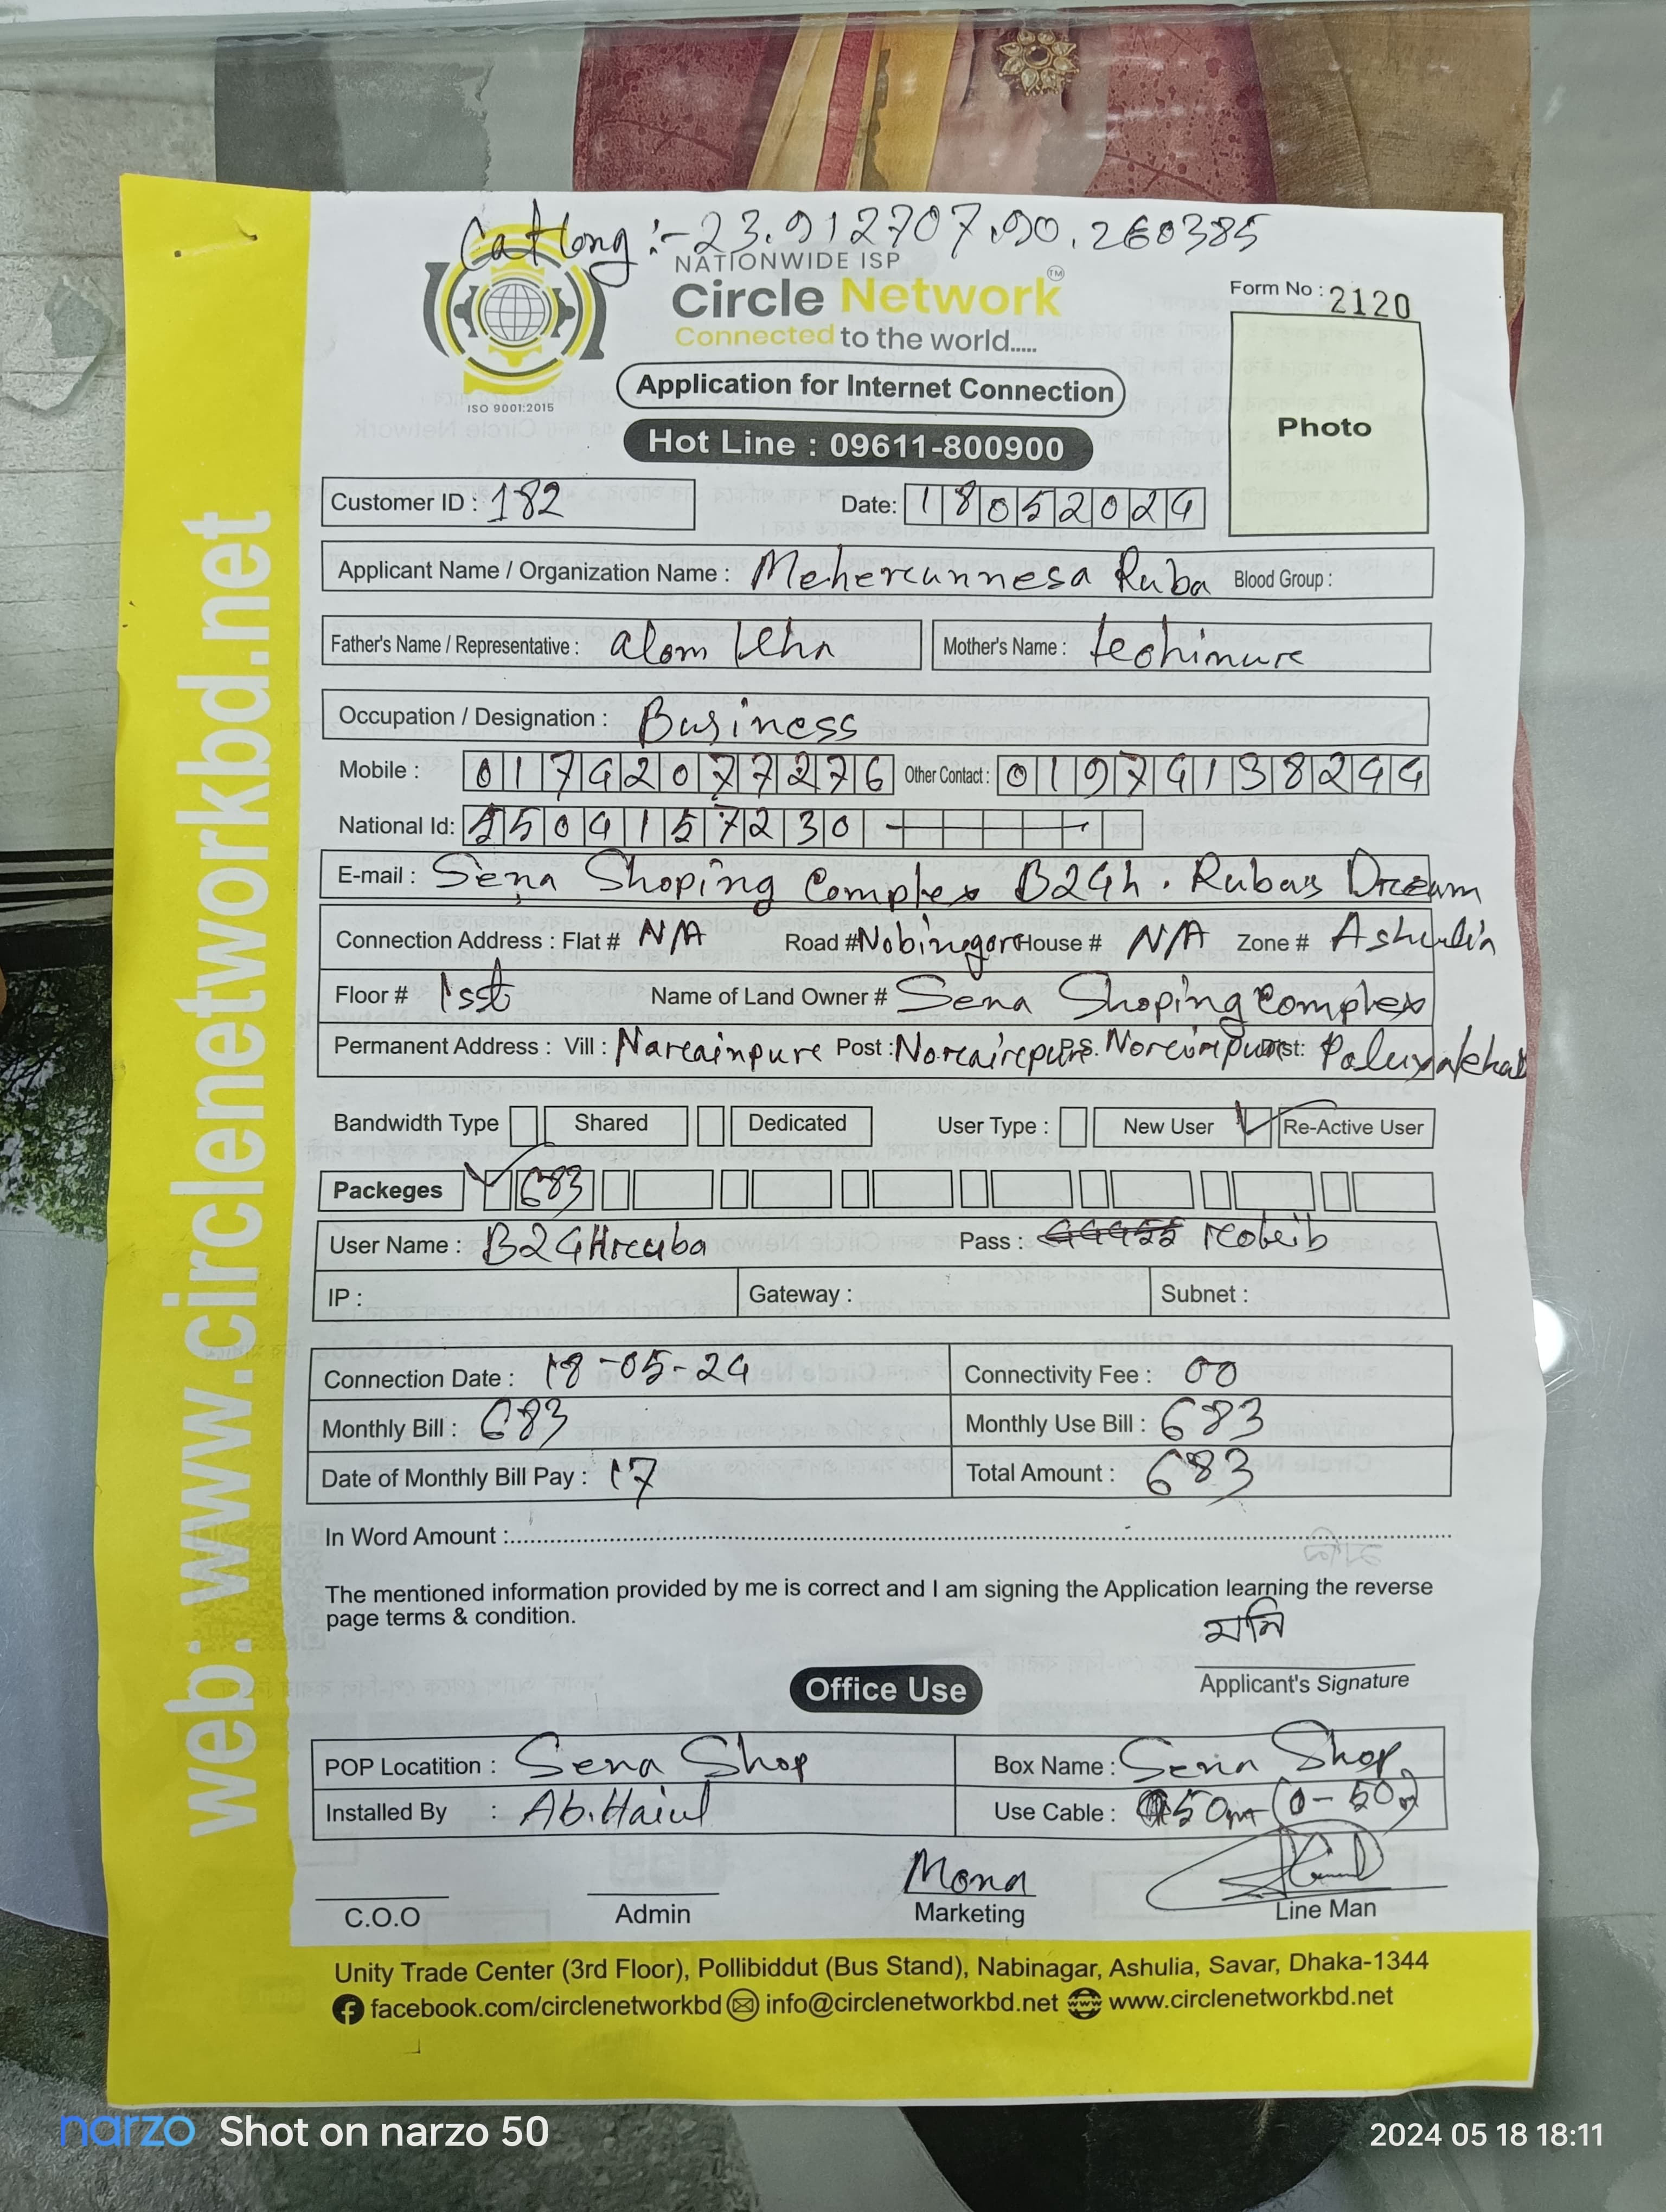 Cat long :- 23.912707.90.260385
NATIONWIDE ISP
Circle Network TM
Connected to the world.....
ISO 9001:2015
Form No : 2120
Photo
Application for Internet Connection
Hot Line : 09611-800900
Customer ID : 182 Date: 18052024
Applicant Name / Organization Name : Mehercunnesa Ruba Blood Group :
Father's Name / Representative : alom Mother's Name :
Occupation / Designation : Business
Mobile : 01742077276 Other Contact : 01974138244
National Id: 5504157230
E-mail : Sena Shoping Complex B24h . Rubas Dream
Connection Address : Flat # N/A Road # Nobinogor House # N/A Zone # Ashulia
Floor # 1sst Name of Land Owner # Sena Shoping Complex
Permanent Address : Vill : Narcainpure Post : P.S. Dist:
Bandwidth Type Shared Dedicated User Type : New User Re-Active User
Packeges 683
User Name : B24Hrcuba Pass :
IP : Gateway : Subnet :
Connection Date : 18-05-24 Connectivity Fee : 00
Monthly Bill : 683 Monthly Use Bill : 683
Date of Monthly Bill Pay : 17 Total Amount : 683
In Word Amount :
The mentioned information provided by me is correct and I am signing the Application learning the reverse
page terms & condition.
মনি
Applicant's Signature
Office Use
POP Locatition : Sena Shop Box Name : Sena Shop
Installed By : Ab. Use Cable : 50m (0-50)
Mona
C.O.O Admin Marketing Line Man
Unity Trade Center (3rd Floor), Pollibiddut (Bus Stand), Nabinagar, Ashulia, Savar, Dhaka-1344
facebook.com/circlenetworkbd info@circlenetworkbd.net www www.circlenetworkbd.net
web: www.circlenetworkbd.net
narzo Shot on narzo 50
2024 05 18 18:11